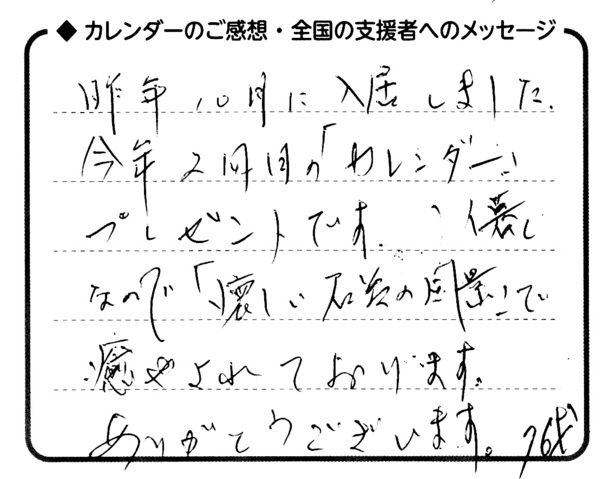 ◆ カレンダーのご感想・全国の支援者へのメッセージ
昨年10月に入居しました.
今年2回目の「カレンダー」
プレゼントです.
なので「懐しい石巻の風景」で
癒やされております.
ありがとうございます。76才